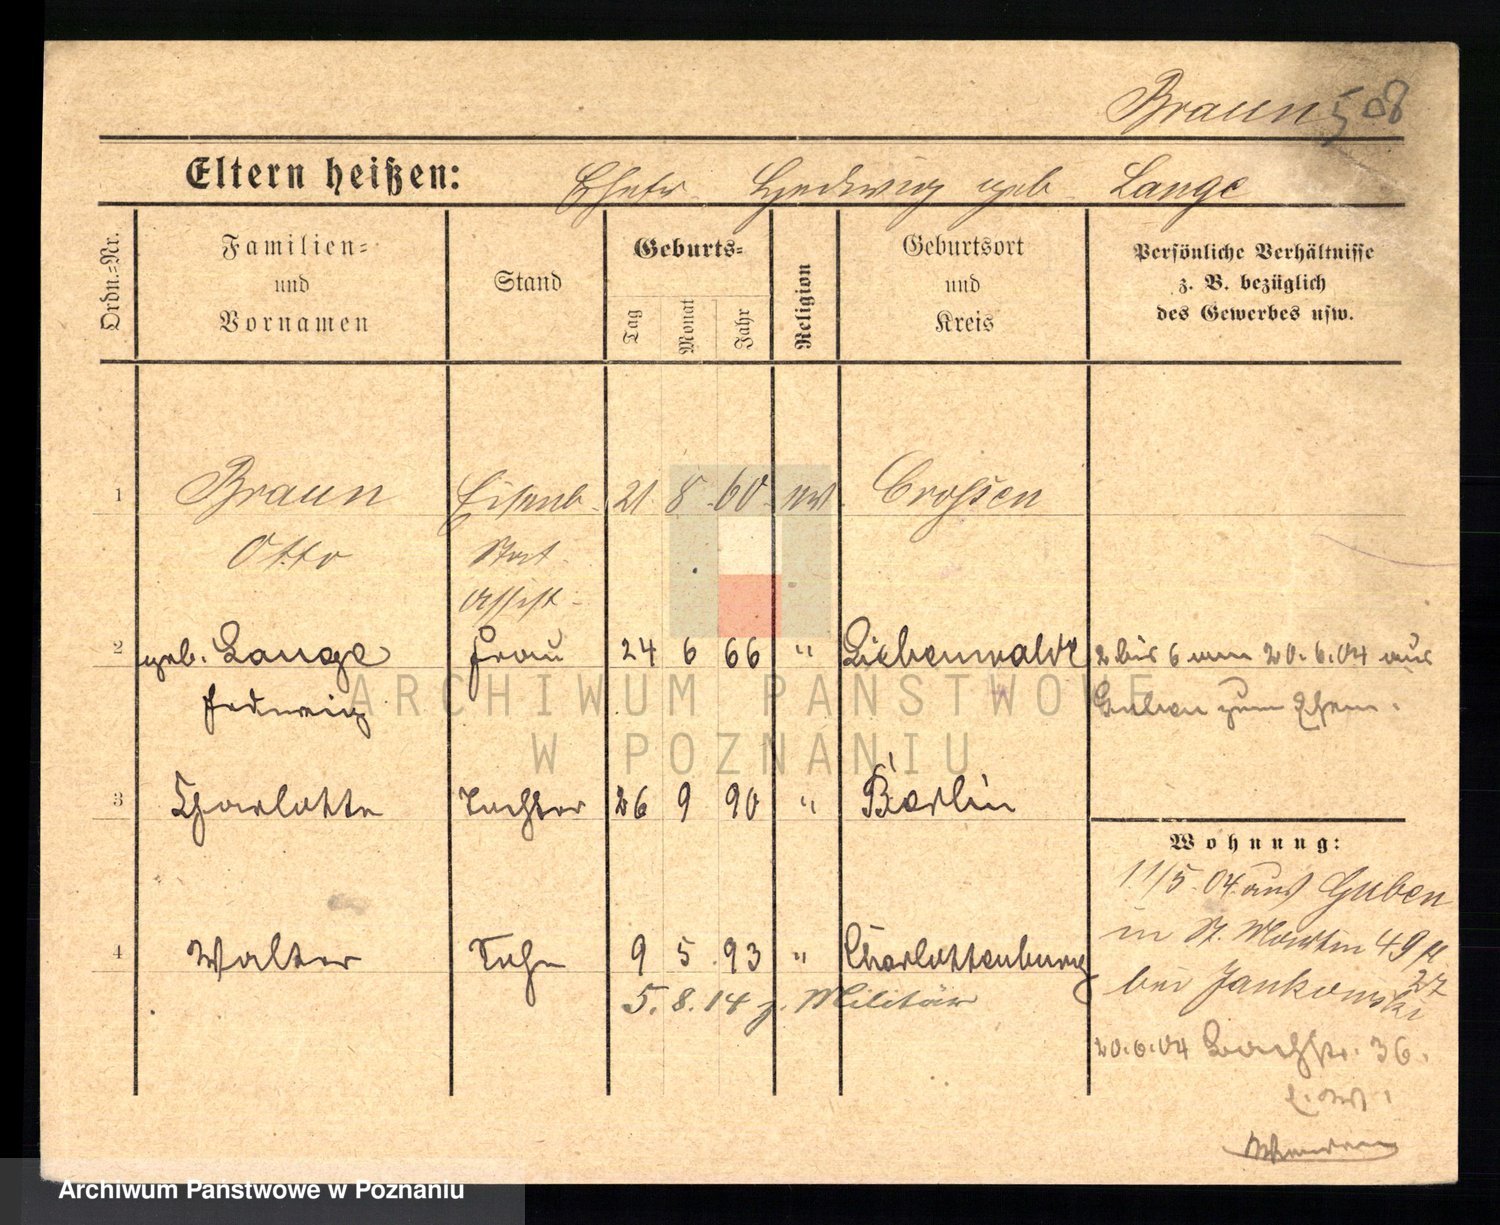 Braun 508
Eltern heißen: Ehefr. Hedwig geb. Lange
Ordn.=Nr.
Familien=
und
Vornamen
Stand
Geburts=
Tag
Monat
Jahr
Religion
Geburtsort
und
Kreis
Persönliche Verhältnisse
z. B. bezüglich
des Gewerbes usw.
1 Braun Eisenb. 21. 8. 60. ev. Crossen
Otto Stat.
Assist.
2 geb. Lange Frau 24 6 66 " Liebenwalde 2 bis 6 am 20.6.04 aus
Hedwig Guben zum Ehem.
3 Charlotte Tochter 26 9 90 " Berlin
Wohnung:
11/5. 04. aus Guben
4 Walter Sohn 9 5 93 " Charlottenburg in St. Martin 49
27
5. 8. 14 z. Militär bei Jankowski
20.6.04 Bachstr. 36.
ARCHIWUM PAŃSTWOWE
W POZNANIU
Archiwum Państwowe w Poznaniu